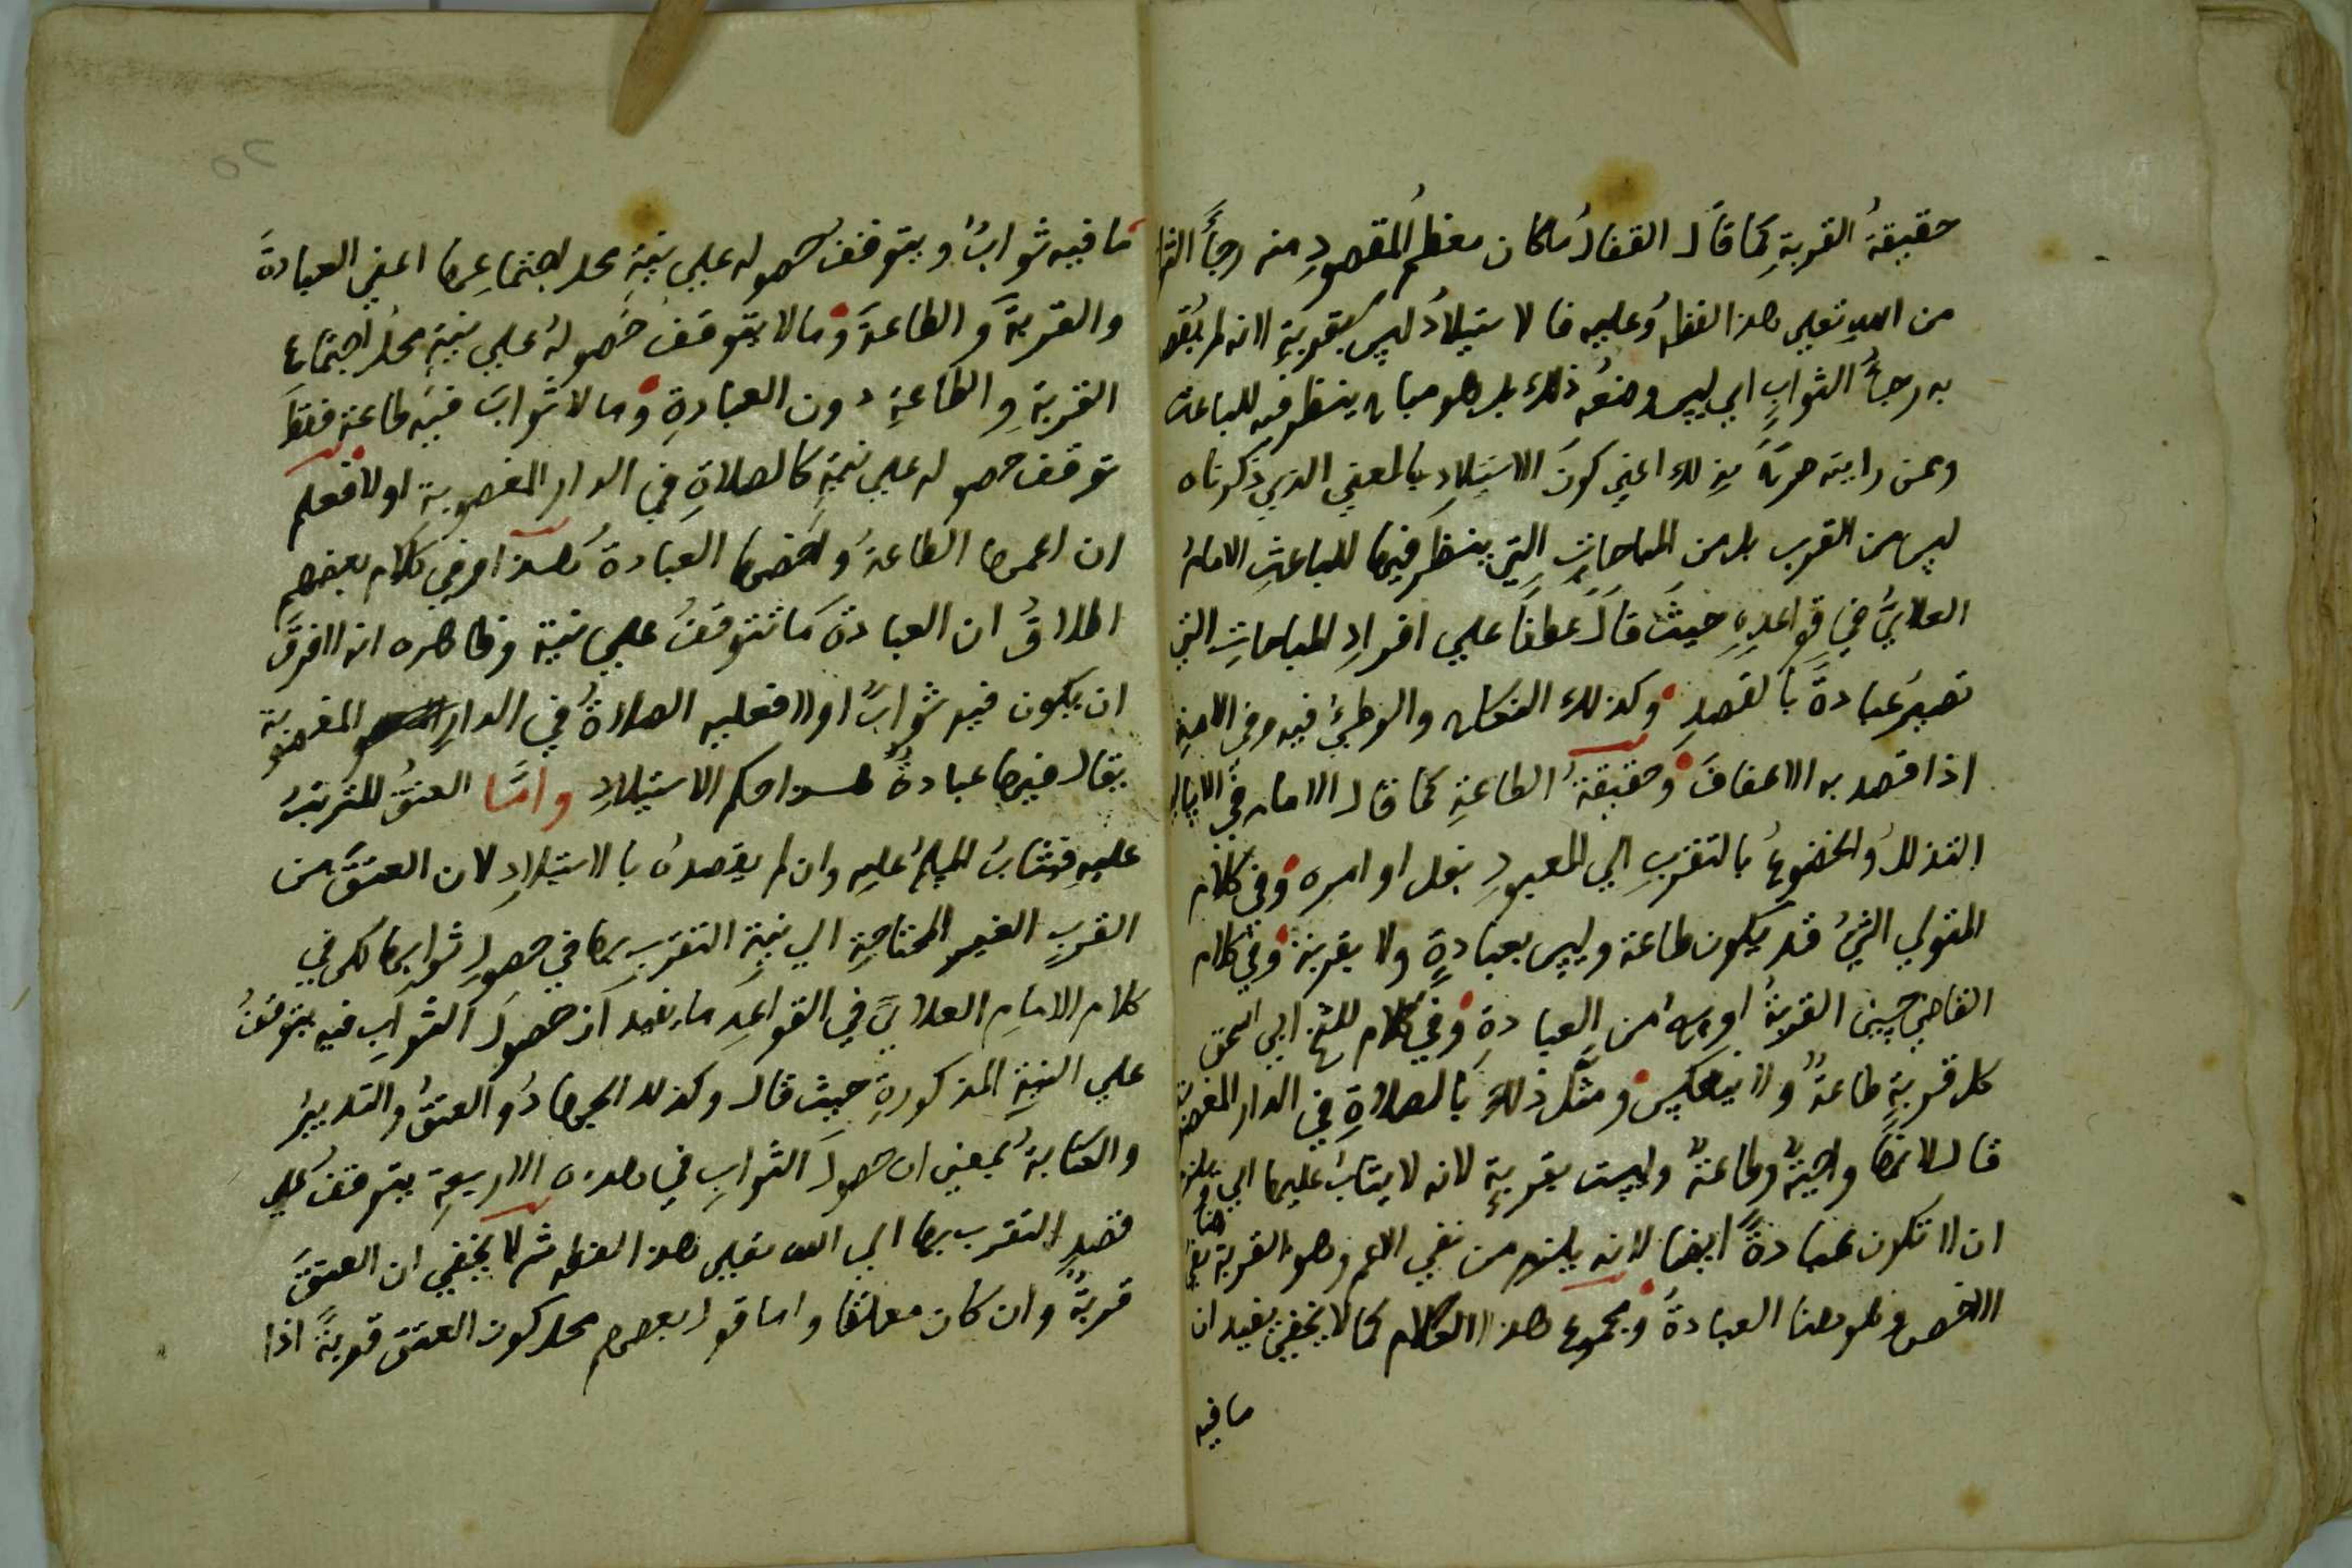 حقيقةُ القربةِ كما قال القفالُ ما كان معظمُ المقصودِ منه رجاءَ الثواب
من الله تعلى هذا لفظهُ وعليه فالاستيلادُ ليس بقربةٍ لانه لم يقصد
به رجاءُ الثوابِ اي ليس وضعُه ذلك بل هو مباح ينظر فيه للباعث
وممن رايته صرحَ بذلك اعني كونَ الاستيلادِ بالمعني الذي ذكرناه
ليس من القرب بل من المباحاتِ التي ينظر فيها للباعثِ الامامُ
العلايُّ في قواعدِهِ حيثُ قال عطفًا علي افرادِ المباحاتِ التي
تصيرُ عبادةً بالقصدِ وكذلك النكاح والوطئُ فيه وفي الامةِ
اذا قصد به الاعفافَ وحقيقةُ الطاعةِ كما قال الامام في
التذللُ والخضوعُ بالتقربِ الي المعبودِ بفعل اوامره وفي كلام
المتولي الشئُ قد يكون طاعة وليس بعبادةٍ ولا بقربة وفي كلام
القاضي حسين القربةُ اوسعُ من العبادةِ وفي كلام للشيخ ابي اسحق
كل قربةٍ طاعةٌ ولا ينعكس ومثَّل ذلك بالصلاةِ في الدار المغصوبة
قال لانها واجبةٌ وطاعةٌ وليست بقربةٍ لانه لا يثابُ عليها اي
ان لا تكون عبادةً ايضا لانه يلزم من نفي الاعم وهو القربة نفيُ
الاخص وهو هنا العبادةُ ومجموع هذا الكلام كما لا يخفي يفيد ان
ما فيه
ما فيه ثوابٌ ويتوقفُ حصوله علي نيةٍ محل اجتماعِها اعني العبادةَ
والقربةَ والطاعةَ وما لا يتوقفُ حصولهُ علي نيةٍ محلُ اجتماع
القربةِ والطاعةِ دون العبادةِ وما لا ثوابَ فيه طاعة فقط
توقف حصوله علي نيةٍ كالصلاةِ في الدار المغصوبة او لا فعلم
ان اعمها الطاعةُ واخصها العبادةُ هذا وفي كلام بعضهم
اطلاقُ ان العبادةَ ما تتوقفُ علي نية وظاهره انه لا فرقَ
ان يكون فيه ثوابٌ او لا فعليه الصلاةُ في الدارِ المغصوبة
يقال فيها عبادةٌ هذا حكم الاستيلادِ وأمَّا العتقُ المترتبُ
عليهِ فيثابُ المسلمُ عليه وان لم يقصدهُ بالاستيلادِ لان العتقَ من
القربِ الغير المحتاجةِ الي نيةِ التقربِ بها في حصولِ ثوابها لكن في
كلام الامامِ العلايِّ في القواعدِ ما يفيد ان حصولَ الثوابِ فيه يتوقفُ
علي النيةِ المذكورةِ حيث قال وكذلك الجهادُ والعتقُ والتدبيرُ
والكتابةُ بمعني ان حصولَ الثوابِ في هذه الاربعةِ يتوقفُ علي
قصدِ التقرب بها الي الله تعلى هذا لفظه ثم لا يخفي ان العتقَ
قربةٌ وان كان معلقًا واما قول بعضهم محل كون العتق قربةً اذا